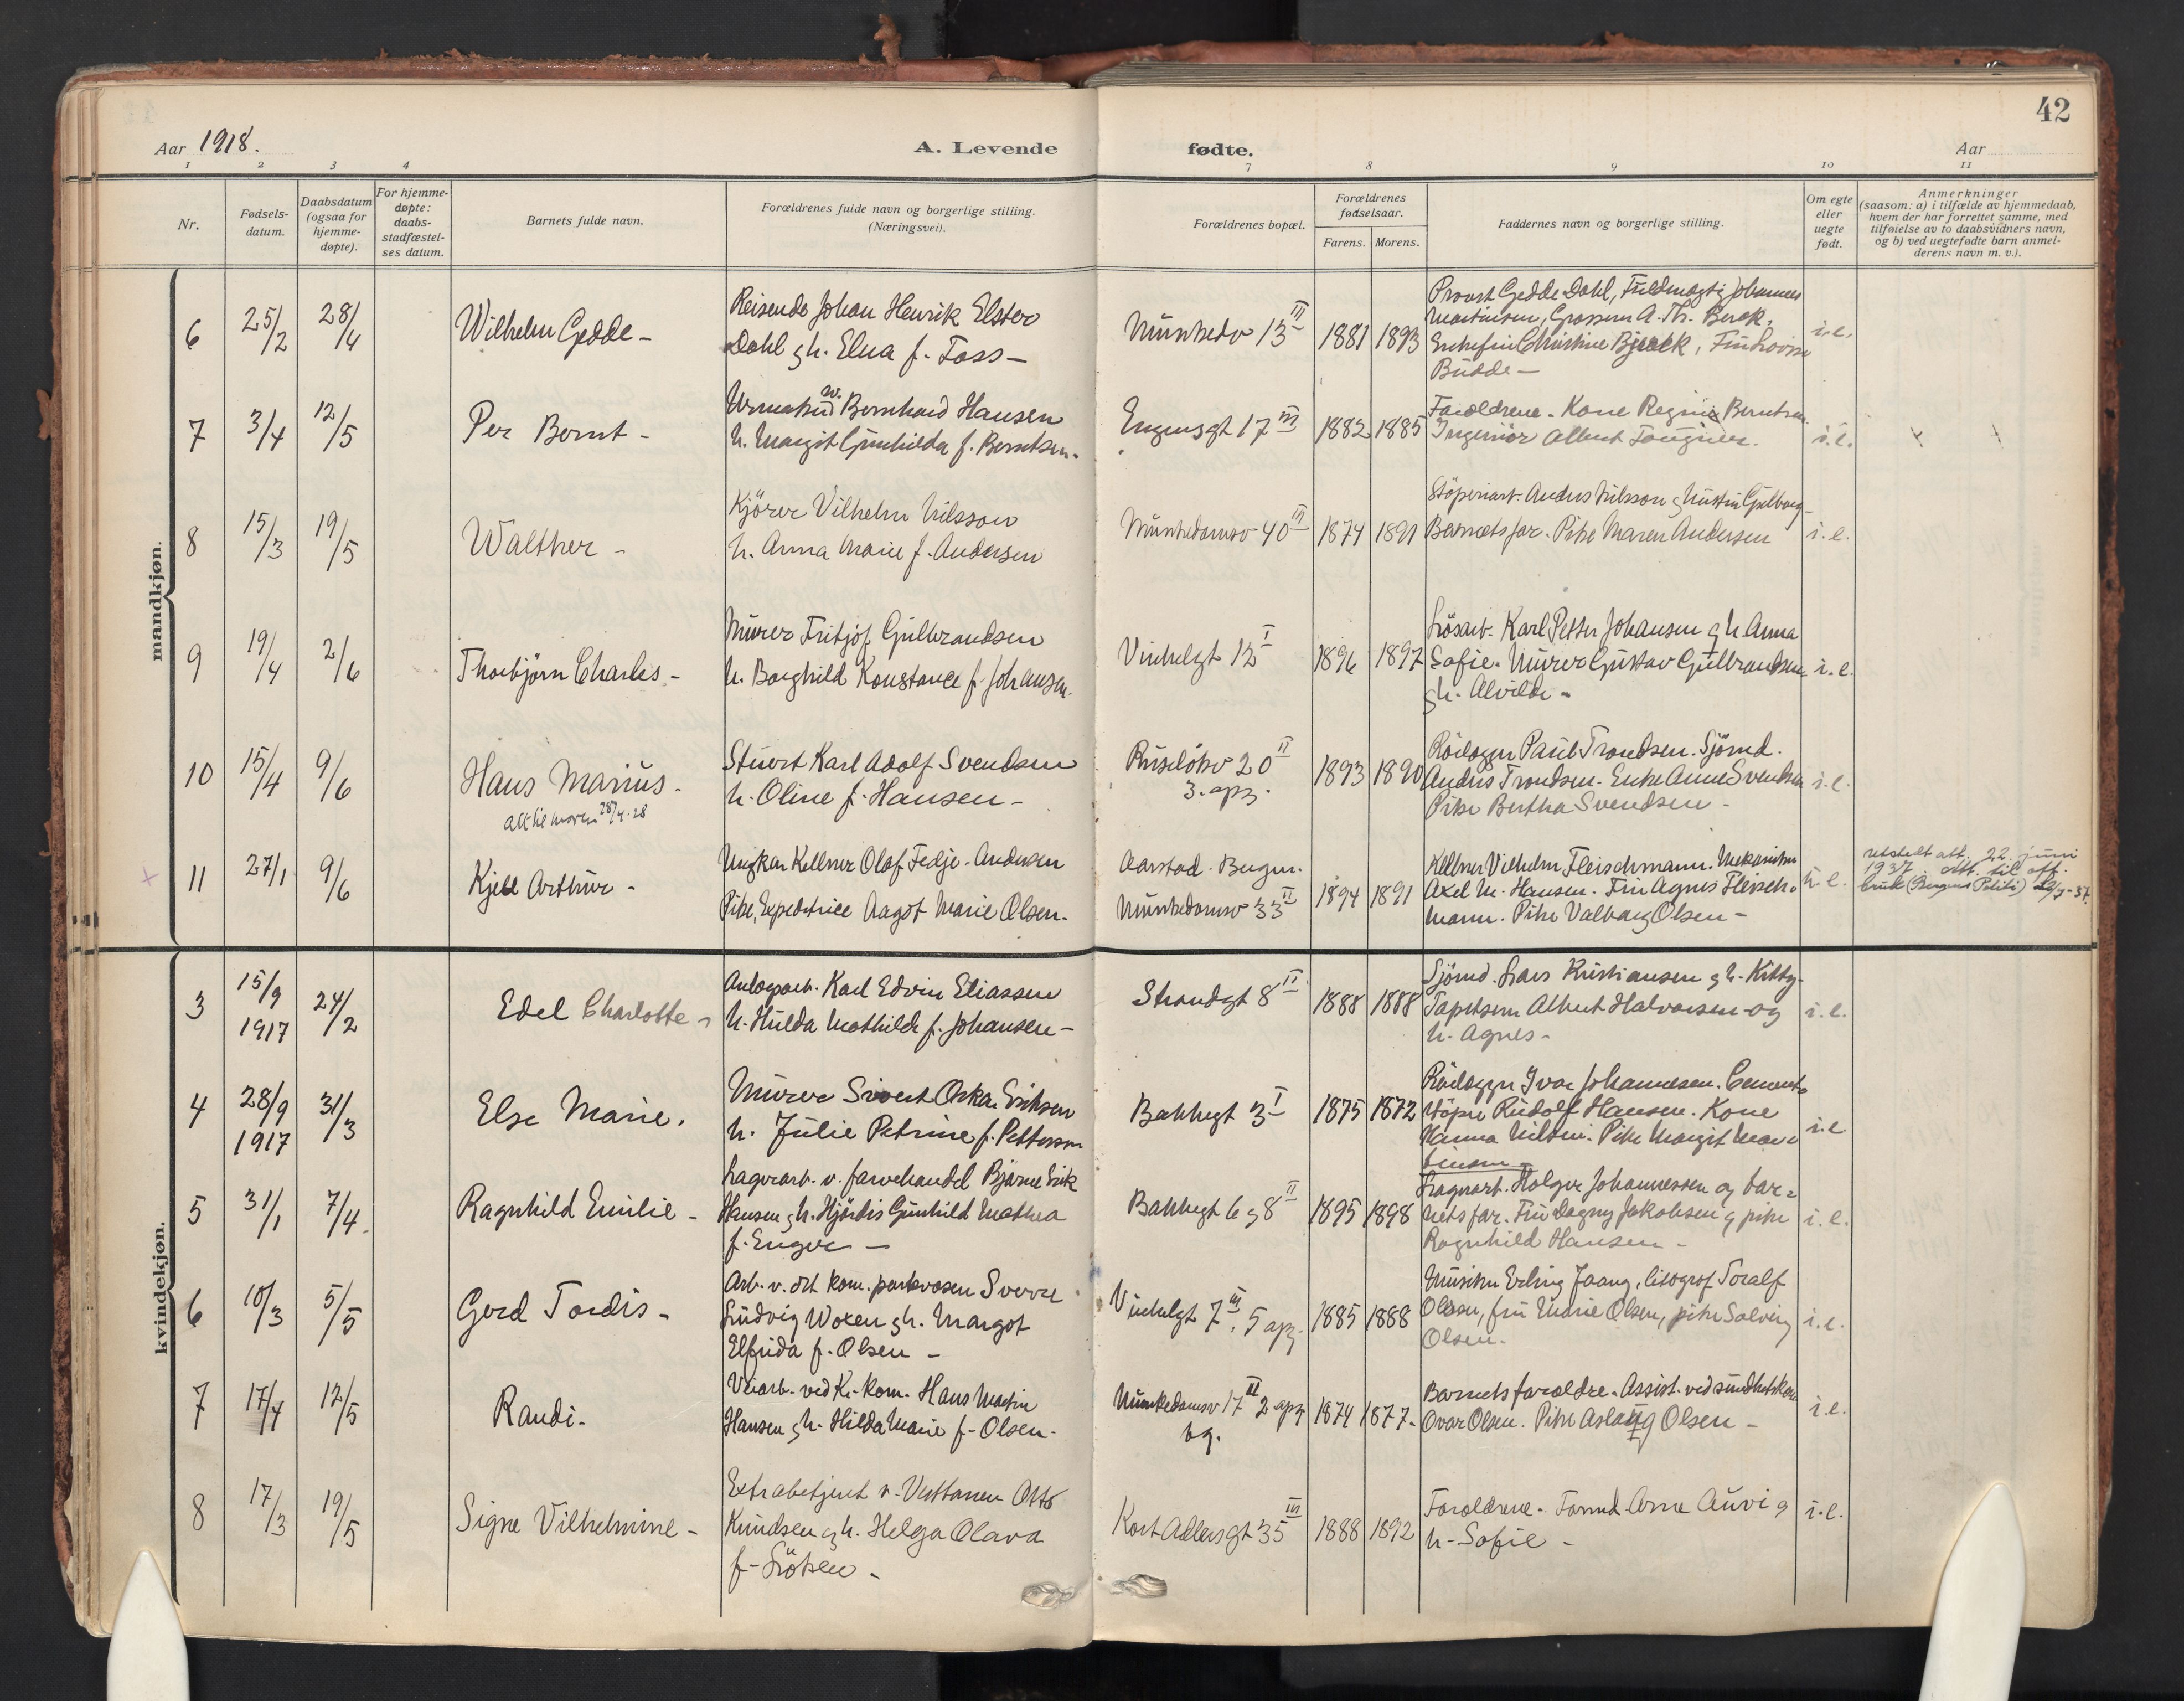 42
Aar 1918.
A. Levende
fødte.
Aar
1 2 3 4
7 8 9 10 11
Nr.
Fødsels-
datum.
Daabsdatum
(ogsaa for
hjemme-
døpte).
For hjemme-
døpte:
daabs-
stadfæstel-
ses datum.
Barnets fulde navn.
Forældrenes fulde navn og borgerlige stilling.
(Næringsvei).
Forældrenes bopæl.
Forældrenes
fødselsaar.
Farens. Morens.
Faddernes navn og borgerlige stilling.
Om egte
eller
uegte
født.
Anmerkninger
(saasom: a) i tilfælde av hjemmedaab,
hvem der har forrettet samme, med
tilføielse av to daabsvidners navn,
og b) ved uegtefødte barn anmel-
derens navn m. v.).
mandkjøn.
6 25/2 28/4
Wilhelm Gedde -
Reisende Johan Henrik Elster
Dahl g h. Elna f. Foss -
Munkedv 13 III
1881 1893
Provst Gedde Dahl, Fuldmægtig Johannes
Martinsen, Grosserer A. Th.
Christine, Fru Lovise
Budde -
i.e.
7 3/4 12/5
Per Bernt -
Bernhard Hansen
h. Margit Gunhilda f. Berntsen.
Engensgt 17 III
1882 1885
Forældrene. Kone Regine Berntsen
Ingeniör Albert
i.e.
8 15/3 19/5
Walther -
Kjörer Vilhelm Nilsson
h. Anna Marie f. Andersen
Munkedamsv 40 III
1874 1891
Stöperiarb. Anders Nilsson g hustru Gulborg -
Barnets far. Pike Maren Andersen
i.e.
9 19/4 2/6
Thorbjörn Charles -
Murer Fritjof Gulbrandsen
h. Borghild Konstance f. Johansen.
Vinkelgt 12 I
1896 1897
Lösarb. Karl Petter Johansen g h. Anna
Sofie. Murer Gustav Gulbrandsen
g h. Alvilde -
i.e.
10 15/4 9/6
Hans Marius -
att til moren 28/4-28
Stuert Karl Adolf Svendsen
h. Oline f. Hansen -
Ruselökv 20 II
3. opg.
1893 1890
Rörlægger Paul Trondsen. Sjömd.
Andreas Trondsen. Enke Anne Svendsen
Pike Bertha Svendsen -
i.e.
11 27/1 9/6
Kjell Arthur -
Ungkar Kellner Olaf Fedje - Andersen
Pike, Expeditrice Aagot Marie Olsen -
Aarstad - Bergen.
Munkedamsv 33 II
1894 1891
Kellner Vilhelm Fleischmann. Mekaniker
Axel M. Hansen. Fru Agnes Fleisch-
mann. Pike Valborg Olsen -
u.e.
utstedt att. 22 juni
1937. Att. til off.
bruk (Bergens Politi)
kvindekjøn.
3 15/9 24/2
1917
Edel Charlotte -
Anlægsarb. Karl Edvin Eliassen
h. Hulda Mathilde f. Johansen -
Strandgt 8 II
1888 1888
Sjömd. Lars Kristiansen g h. Kitty -
Tapetserer Albert Halvorsen og
h. Agnes -
i.e.
4 28/9 31/3
1917
Else Marie.
Murer Sivert Oskar Eriksen
h. Julie Petrine f. Petterson
Bakkegt 3 I
1875 1872
Rörlægger Ivar Johannesen. Cement-
stöper Rudolf Hansen. Kone
Hanna Nilsen. Pike Margit Mar-
tinsen -
i.e.
5 31/1 7/4.
Ragnhild Emilie -
Lagerarb. v. farvehandel Bjarne Erik
Hansen g h. Hjördis Gunhild Mathea
f. Enger -
Bakkegt 6 g 8 II
1895 1898
Lagerarb. Holger Johannessen og bar-
nets far. Fru Dagny Jakobsen g pike
Ragnhild Hansen -
i.e.
6 10/3 5/5
Gerd Tordis -
Arb. v. det kom. parkvæsen Sverre
Ludvig Woxen g h. Margot
Elfrida f. Olsen -
Vinkelgt 7 III. 5 opg.
1885 1888
Musiker Erling Jaang, litograf Toralf
Olsen, fru Marie Olsen, pike Solveig
Olsen -
i.e.
7 17/4 12/5
Randi -
Veiarb. ved Kr. kom. Hans Martin
Hansen g h. Hilda Marie f. Olsen -
Munkedamsv 17 III 2 opg
bg.
1874 1877 -
Barnets forældre. Assist. ved sundhetskom
Ovar Olsen. Pike Aslaug Olsen -
i.e.
8 17/3 19/5
Signe Vilhelmine -
Extrabetjent v. Vestbanen Otto
Knudsen g h. Helga Olava
f. Löken -
Kort Adlersgt 35 III
1888 1892
Forældrene. Formd. Arne Auvi g
h. Sofie -
i.e.